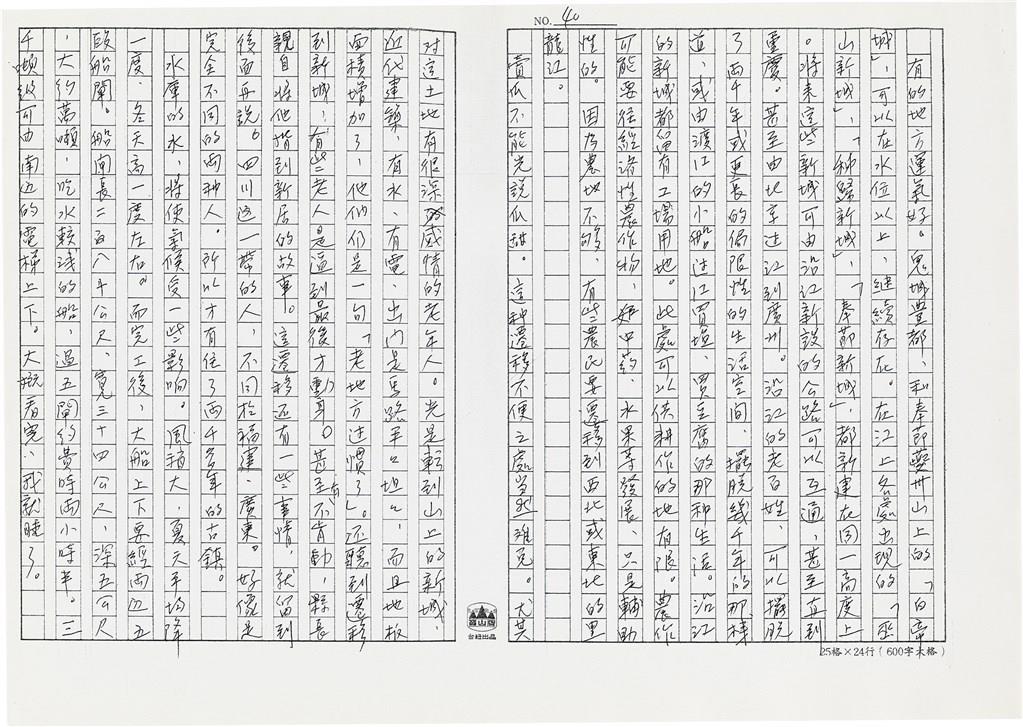 NO. 40
有的地方運氣好。鬼城豊都,和奉節夔州山上的「白帝
城」,可以在水位以上,继續存在。在江上多處出現的「巫
山新城」,「秭歸新城」,「奉節新城」,都新建在同一高度上
。將来這些新城可由沿江新設的公路可以互通,甚至直到
重慶。甚至由北享过江到廣州。沿江的老百姓,可以擺脱
了两千年或更長的侷限性的生活空间,擺脱幾千年的那樣
道,或由渡江的小船过江買塩、買豆腐的那种生活。沿江
的新城都留有工場用地。此處可以供耕作的地有限。農作
可能要往經濟性農作物,如中药、水果等發展,只是輔助
性的。因為農地不够,有些農民要遷移到西北或東北的黑
龍江。
賣瓜不能光説瓜甜。這种遷移不便之處當然难免。尤其
对這土地有很深的感情的老年人。光是転到山上的新城,
近代建築,有水、有電、出门是馬路平平坦坦,而且地板
面積增加了,他们们是一句「老地方过慣了」。还聽到遷移
到新城,有些老人是逼到最後才動身。甚至有不肯動,縣長
親自將他揹到新居的故事。這遷移还有一些事情,就留到
後面再説。四川这一帶的人,不同於福建、廣東。好像是
完全不同的两种人。所以才有住了两千多年的古鎮。
水庫的水,將使氣候受一些影响。風稍大,夏天平均降
一度,冬天高一度左右。而完工後,大船上下要經两四五
段船閘。船闸長二百八十公尺,寬三十四公尺,深五公尺
,大约萬噸,吃水較淺的船,過五閘约費時两小時半。三
千噸級可由南边的電梯上下。大概看完,我就睡了。
台紐出品
25格×24行(600字本格)